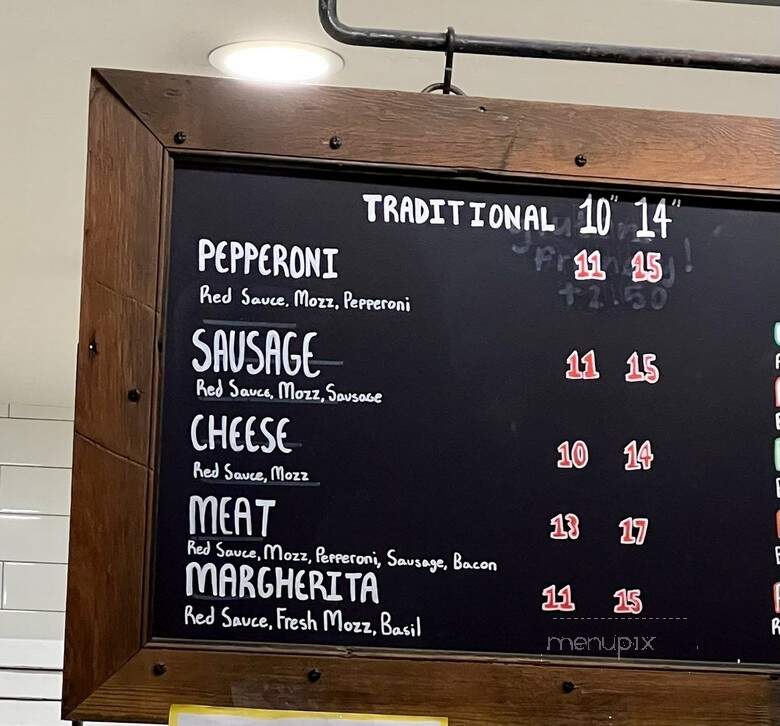 TRADITIONAL 10" 14"
PEPPERONI 11 15
Red Sauce, Mozz, Pepperoni
+2.50
SAUSAGE 11 15
Red Sauce, Mozz, Sausage
CHEESE 10 14
Red Sauce, Mozz
MEAT 13 17
Red Sauce, Mozz, Pepperoni, Sausage, Bacon
MARGHERITA 11 15
Red Sauce, Fresh Mozz, Basil
menupix